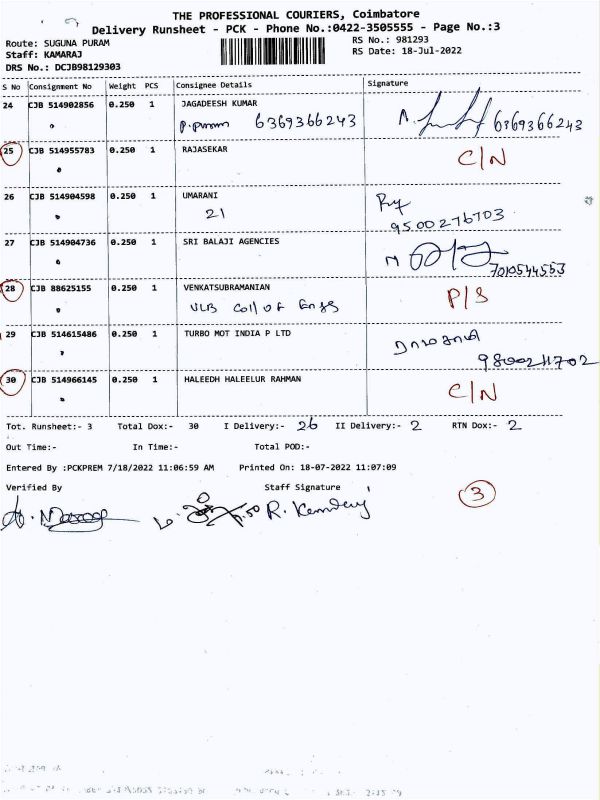 THE PROFESSIONAL COURIERS, Coimbatore
Delivery Runsheet - PCK - Phone No.:0422-3505555 - Page No.:3
Route: SUGUNA PURAM RS No.: 981293
Staff: KAMARAJ RS Date: 18-Jul-2022
DRS No.: DCJB98129303
S No Consignment No Weight PCS Consignee Details Signature
24 CJB 514902856 0.250 1 JAGADEESH KUMAR
6369366243 6369366243
25 CJB 514955783 0.250 1 RAJASEKAR
C/N
26 CJB 514904598 0.250 1 UMARANI
21 9500276703
27 CJB 514904736 0.250 1 SRI BALAJI AGENCIES
7010544553
28 CJB 88625155 0.250 1 VENKATSUBRAMANIAN P/S
VLB Coll of Engg
29 CJB 514615486 0.250 1 TURBO MOT INDIA P LTD
9800211702
30 CJB 514966145 0.250 1 HALEEDH HALEELUR RAHMAN
C/N
Tot. Runsheet:- 3 Total Dox:- 30 I Delivery:- 26 II Delivery:- 2 RTN Dox:- 2
Out Time:- In Time:- Total POD:-
Entered By :PCKPREM 7/18/2022 11:06:59 AM Printed On: 18-07-2022 11:07:09
Verified By Staff Signature
3